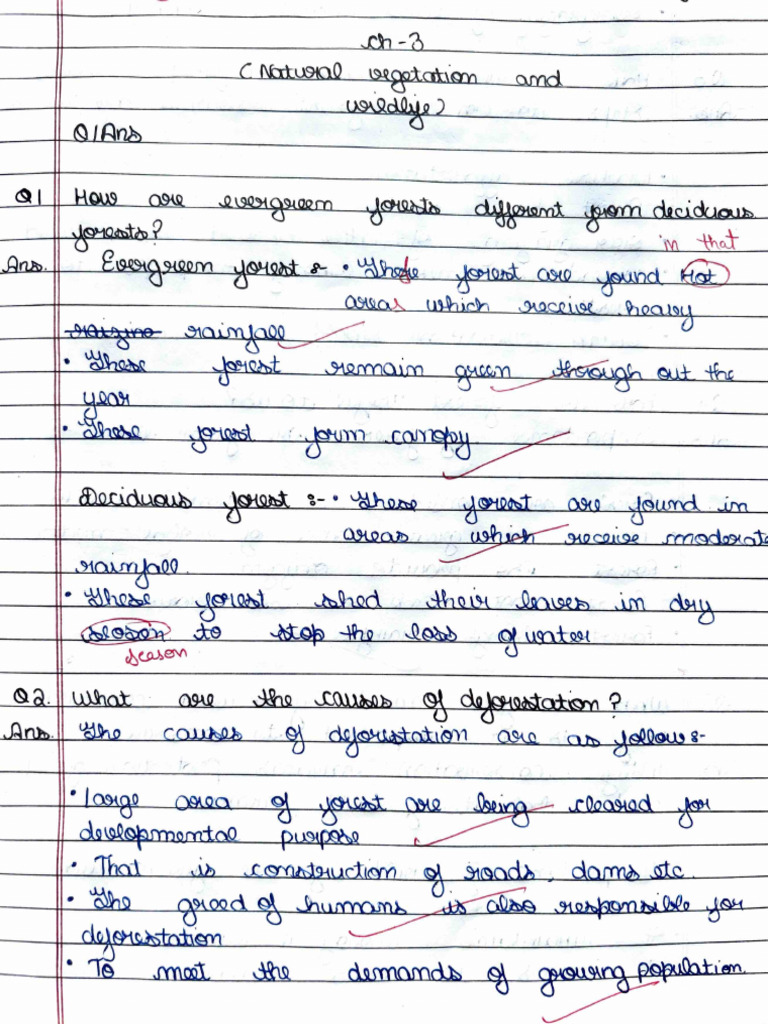 ch-3
(Natural vegetation and
wildlife)
Q1Ans
Q1 How are evergreen forests different from deciduous
forests?
in that
Ans. Evergreen forest :- • These forest are found Hot
areas which receive heavy
rainfall
• These forest remain green through out the
year
• These forest form canopy
Deciduous forest :- • These forest are found in
areas which receive moderate
rainfall.
• These forest shed their leaves in dry
seoson to stop the loss of water
season
Q2. What are the causes of deforestation?
Ans. The causes of deforestation are as follow :-
• large area of forest are being cleared for
developmental purpose
• That is construction of roads, dams etc.
• The greed of humans is also responsible for
deforestation
• To meet the demands of growing population.